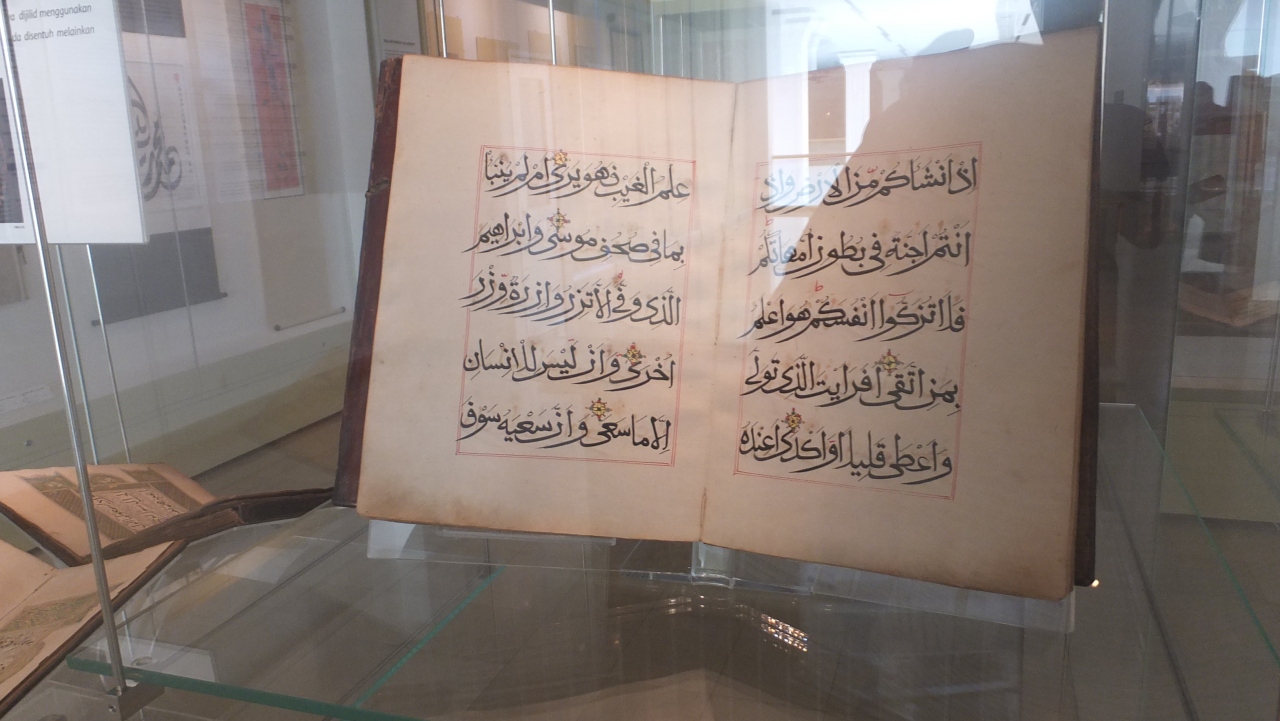 اذ انشاكم من الارض واذ
انتم اجنة في بطون امهاتكم
فلا تزكوا انفسكم هو اعلم
بمن اتقى افرايت الذي تولى
واعطى قليلا واكدى اعنده
علم الغيب فهو يرى ام لم ينبا
بما في صحف موسى وابراهيم
الذي وفى الا تزر وازرة وزر
اخرى وان ليس للانسان
الا ما سعى وان سعيه سوف
dijilid menggunakan
disentuh melainkan